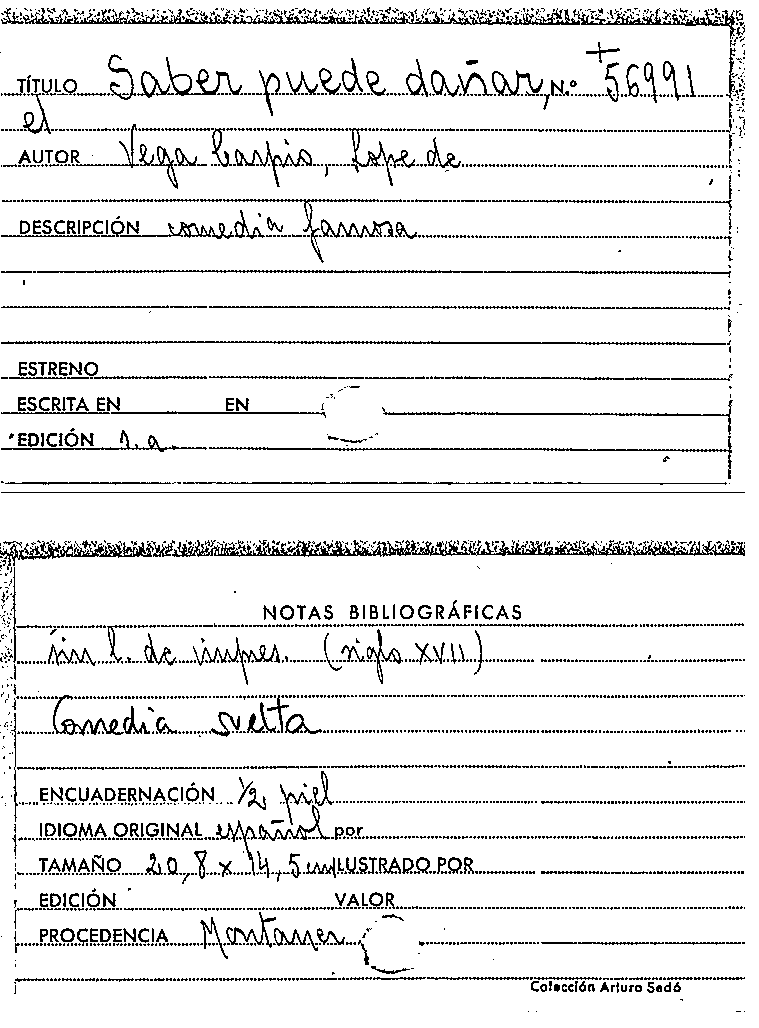 TÍTULO Saber puede dañar, N.º +56991
el
AUTOR Vega Carpio, Lope de
DESCRIPCIÓN comedia famosa
ESTRENO
ESCRITA EN EN
EDICIÓN 1.a
NOTAS BIBLIOGRÁFICAS
sin l. de impres. (siglo XVII)
Comedia suelta
ENCUADERNACIÓN 1/2 piel
IDIOMA ORIGINAL español por
TAMAÑO 20,8 x 14,5 cm ILUSTRADO POR
EDICIÓN VALOR
PROCEDENCIA Montaner
Colección Arturo Sedó